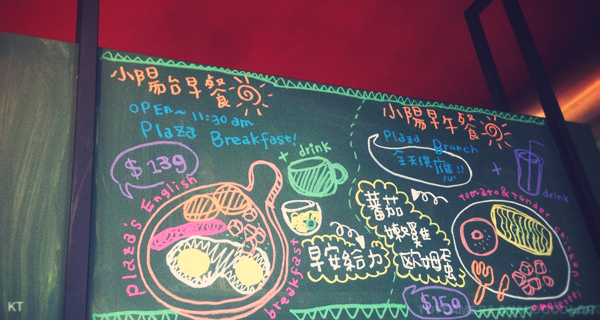 小陽台早餐
OPEN~11:30am
Plaza Breakfast!
$139
+ drink
plaza's English
breakfast
早安給力
小陽早午餐
Plaza Brunch
天天供應!!
+ drink
蕃茄
嫩雞
歐姆蛋
tomato & tender chicken
omelette!
$150
KT